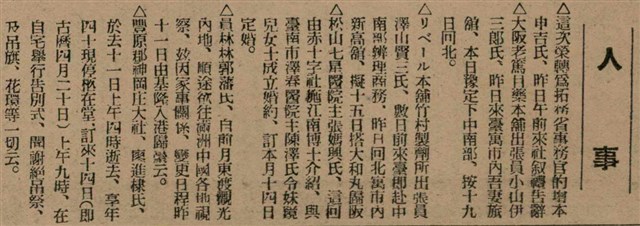 人事
△這次榮轉爲拓務省事務官的増本
申吉氏、昨日午前來社叙轉告辭
△大阪老篤目藥本舖出張員小山伊
三郎氏、昨日來臺寓市内吾妻旅
舘、本日豫定下中南部、按十九
日回北。
△リベール本舖竹村製劑所出張員
澤山賢三氏、數日前來臺即赴中
南部辨理商務、昨日回北寓市内
新高舘、擬十五日搭大和丸歸阪
△松山七星醫院主張嬀興氏、這回
由赤十字社施江南博士介紹、與
臺南市澤春醫院主陳澤氏令妹鏡
兒女士成立婚約、訂本月十四日
定婚。
△員林林郭藩氏、自前月東渡觀光
内地、順途欲往滿洲中國各地視
察、玆因家事關係、變更日程昨
十一日由基隆入港歸臺云。
△豐原郡神岡庄大社、陳進棣氏、
於去十一日上午四時逝去、享年
四十現停柩在堂、訂來十四日(即
古曆四月二十日)上午九時、在
自宅舉行告別式、聞謝絶吊祭、
及吊旗、花環等一切云。